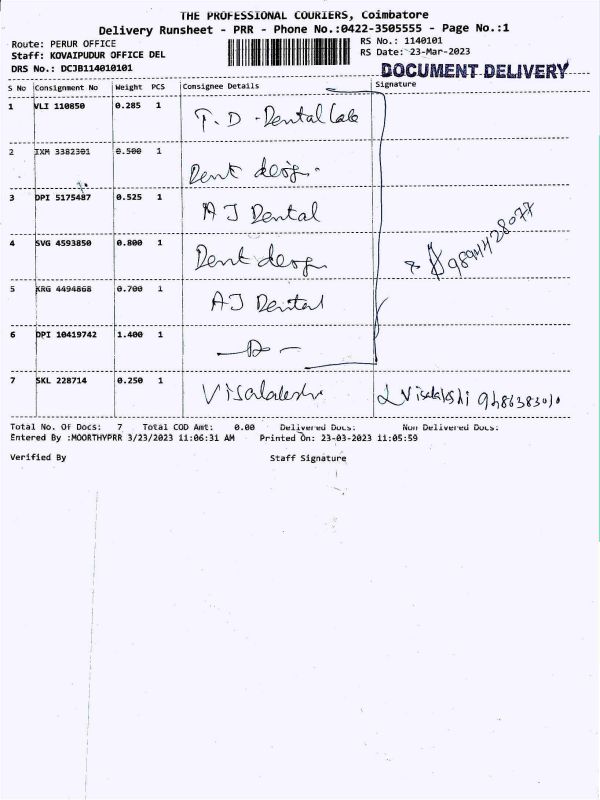 THE PROFESSIONAL COURIERS, Coimbatore
Delivery Runsheet - PRR - Phone No.:0422-3505555 - Page No.:1
Route: PERUR OFFICE
RS No.: 1140101
Staff: KOVAIPUDUR OFFICE DEL
RS Date: 23-Mar-2023
DRS No.: DCJB114010101
DOCUMENT DELIVERY
S No Consignment No Weight PCS Consignee Details Signature
1 VLI 110850 0.285 1 T. D - Dental Care
2 IXM 3382301 0.500 1 Dent desig.
3 DPI 5175487 0.525 1 A J Dental
4 SVG 4593850 0.800 1 Dent desgn
5 KRG 4494868 0.700 1 AJ Dental
6 DPI 10419742 1.400 1
7 SKL 228714 0.250 1 Visalakshi Visalakshi
Total No. Of Docs: 7 Total COD Amt: 0.00 Delivered Docs: Non Delivered Docs:
Entered By :MOORTHYPRR 3/23/2023 11:06:31 AM Printed On: 23-03-2023 11:05:59
Verified By Staff Signature